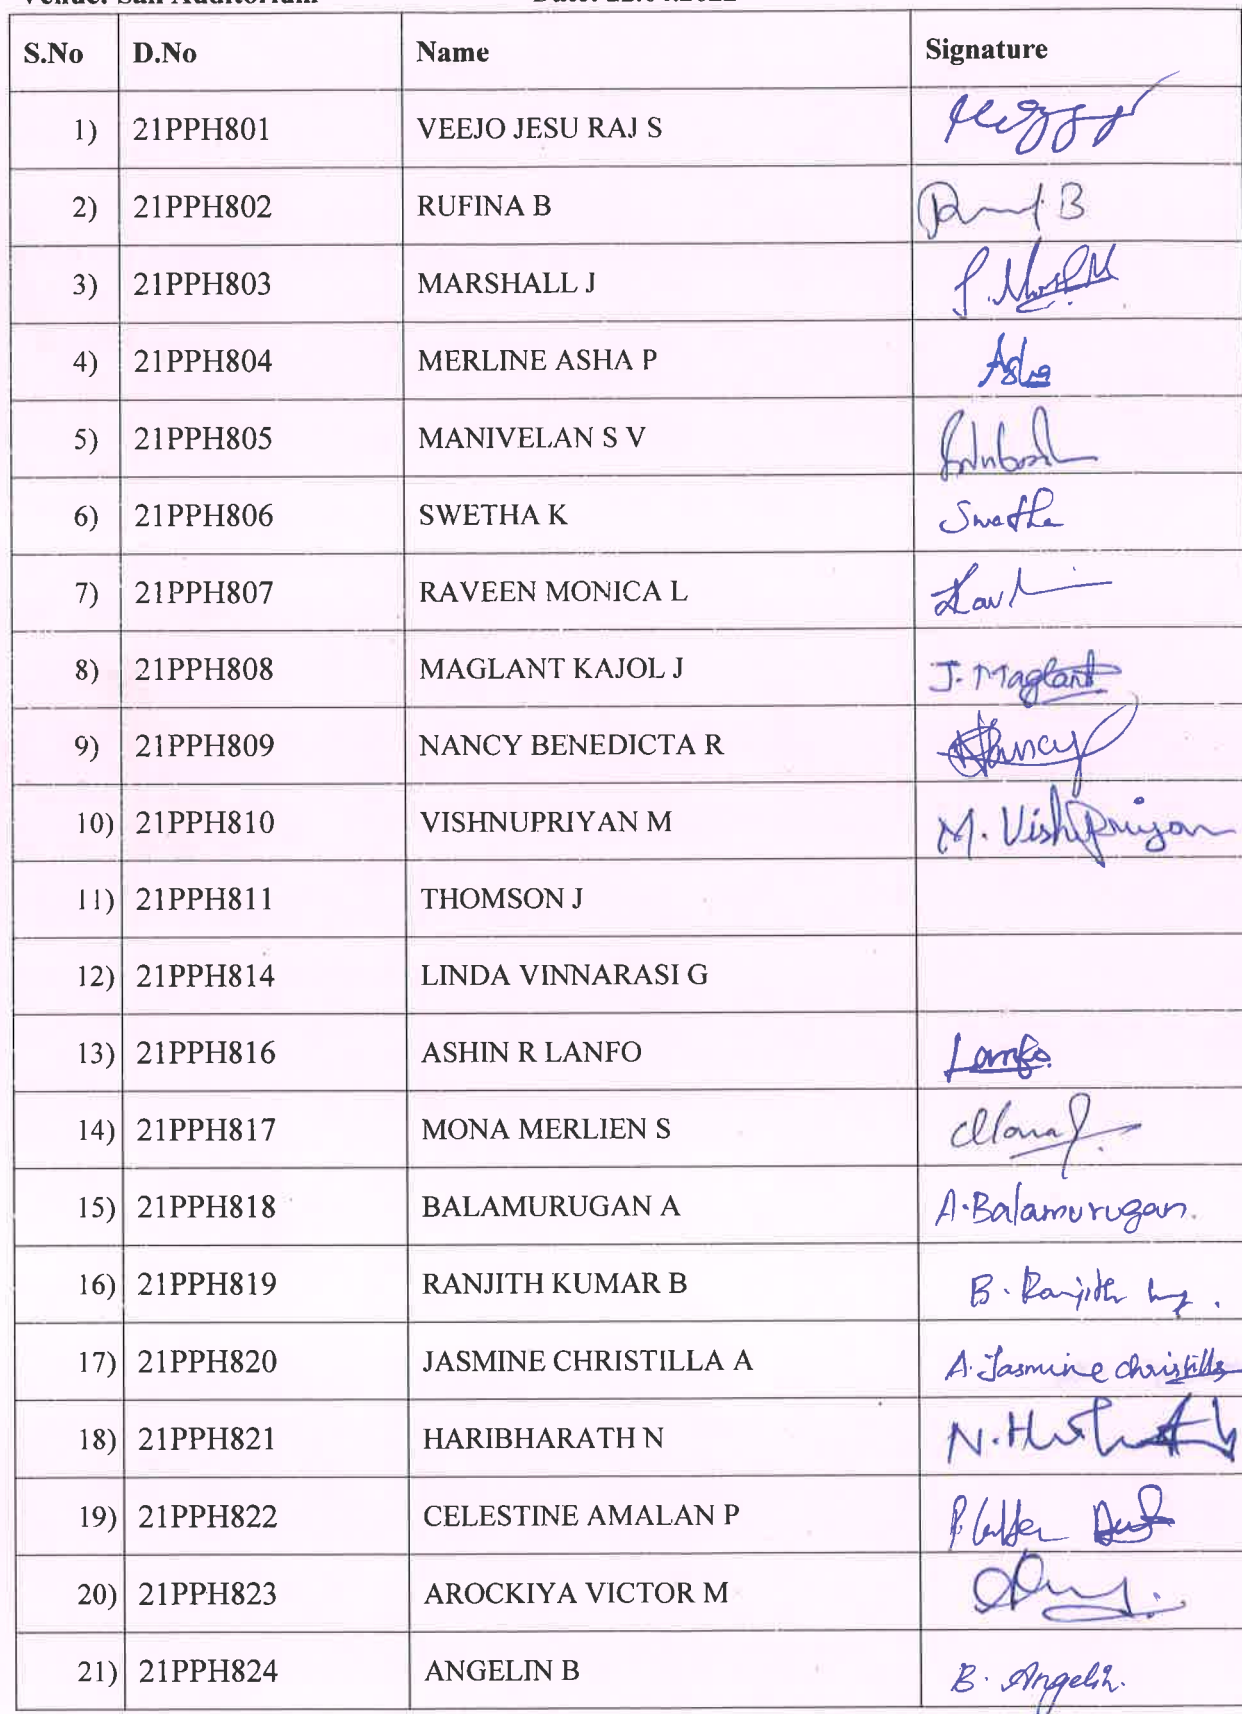 S.No D.No Name Signature
1) 21PPH801 VEEJO JESU RAJ S
2) 21PPH802 RUFINA B
3) 21PPH803 MARSHALL J
4) 21PPH804 MERLINE ASHA P Asha
5) 21PPH805 MANIVELAN S V
6) 21PPH806 SWETHA K Swetha
7) 21PPH807 RAVEEN MONICA L
8) 21PPH808 MAGLANT KAJOL J J. Maglant
9) 21PPH809 NANCY BENEDICTA R Nancy
10) 21PPH810 VISHNUPRIYAN M M.
11) 21PPH811 THOMSON J
12) 21PPH814 LINDA VINNARASI G
13) 21PPH816 ASHIN R LANFO Lanfo
14) 21PPH817 MONA MERLIEN S Mona
15) 21PPH818 BALAMURUGAN A A. Balamurugan.
16) 21PPH819 RANJITH KUMAR B B. Ranjith
17) 21PPH820 JASMINE CHRISTILLA A A. Jasmine christilla
18) 21PPH821 HARIBHARATH N N.
19) 21PPH822 CELESTINE AMALAN P
20) 21PPH823 AROCKIYA VICTOR M
21) 21PPH824 ANGELIN B B. Angelin.